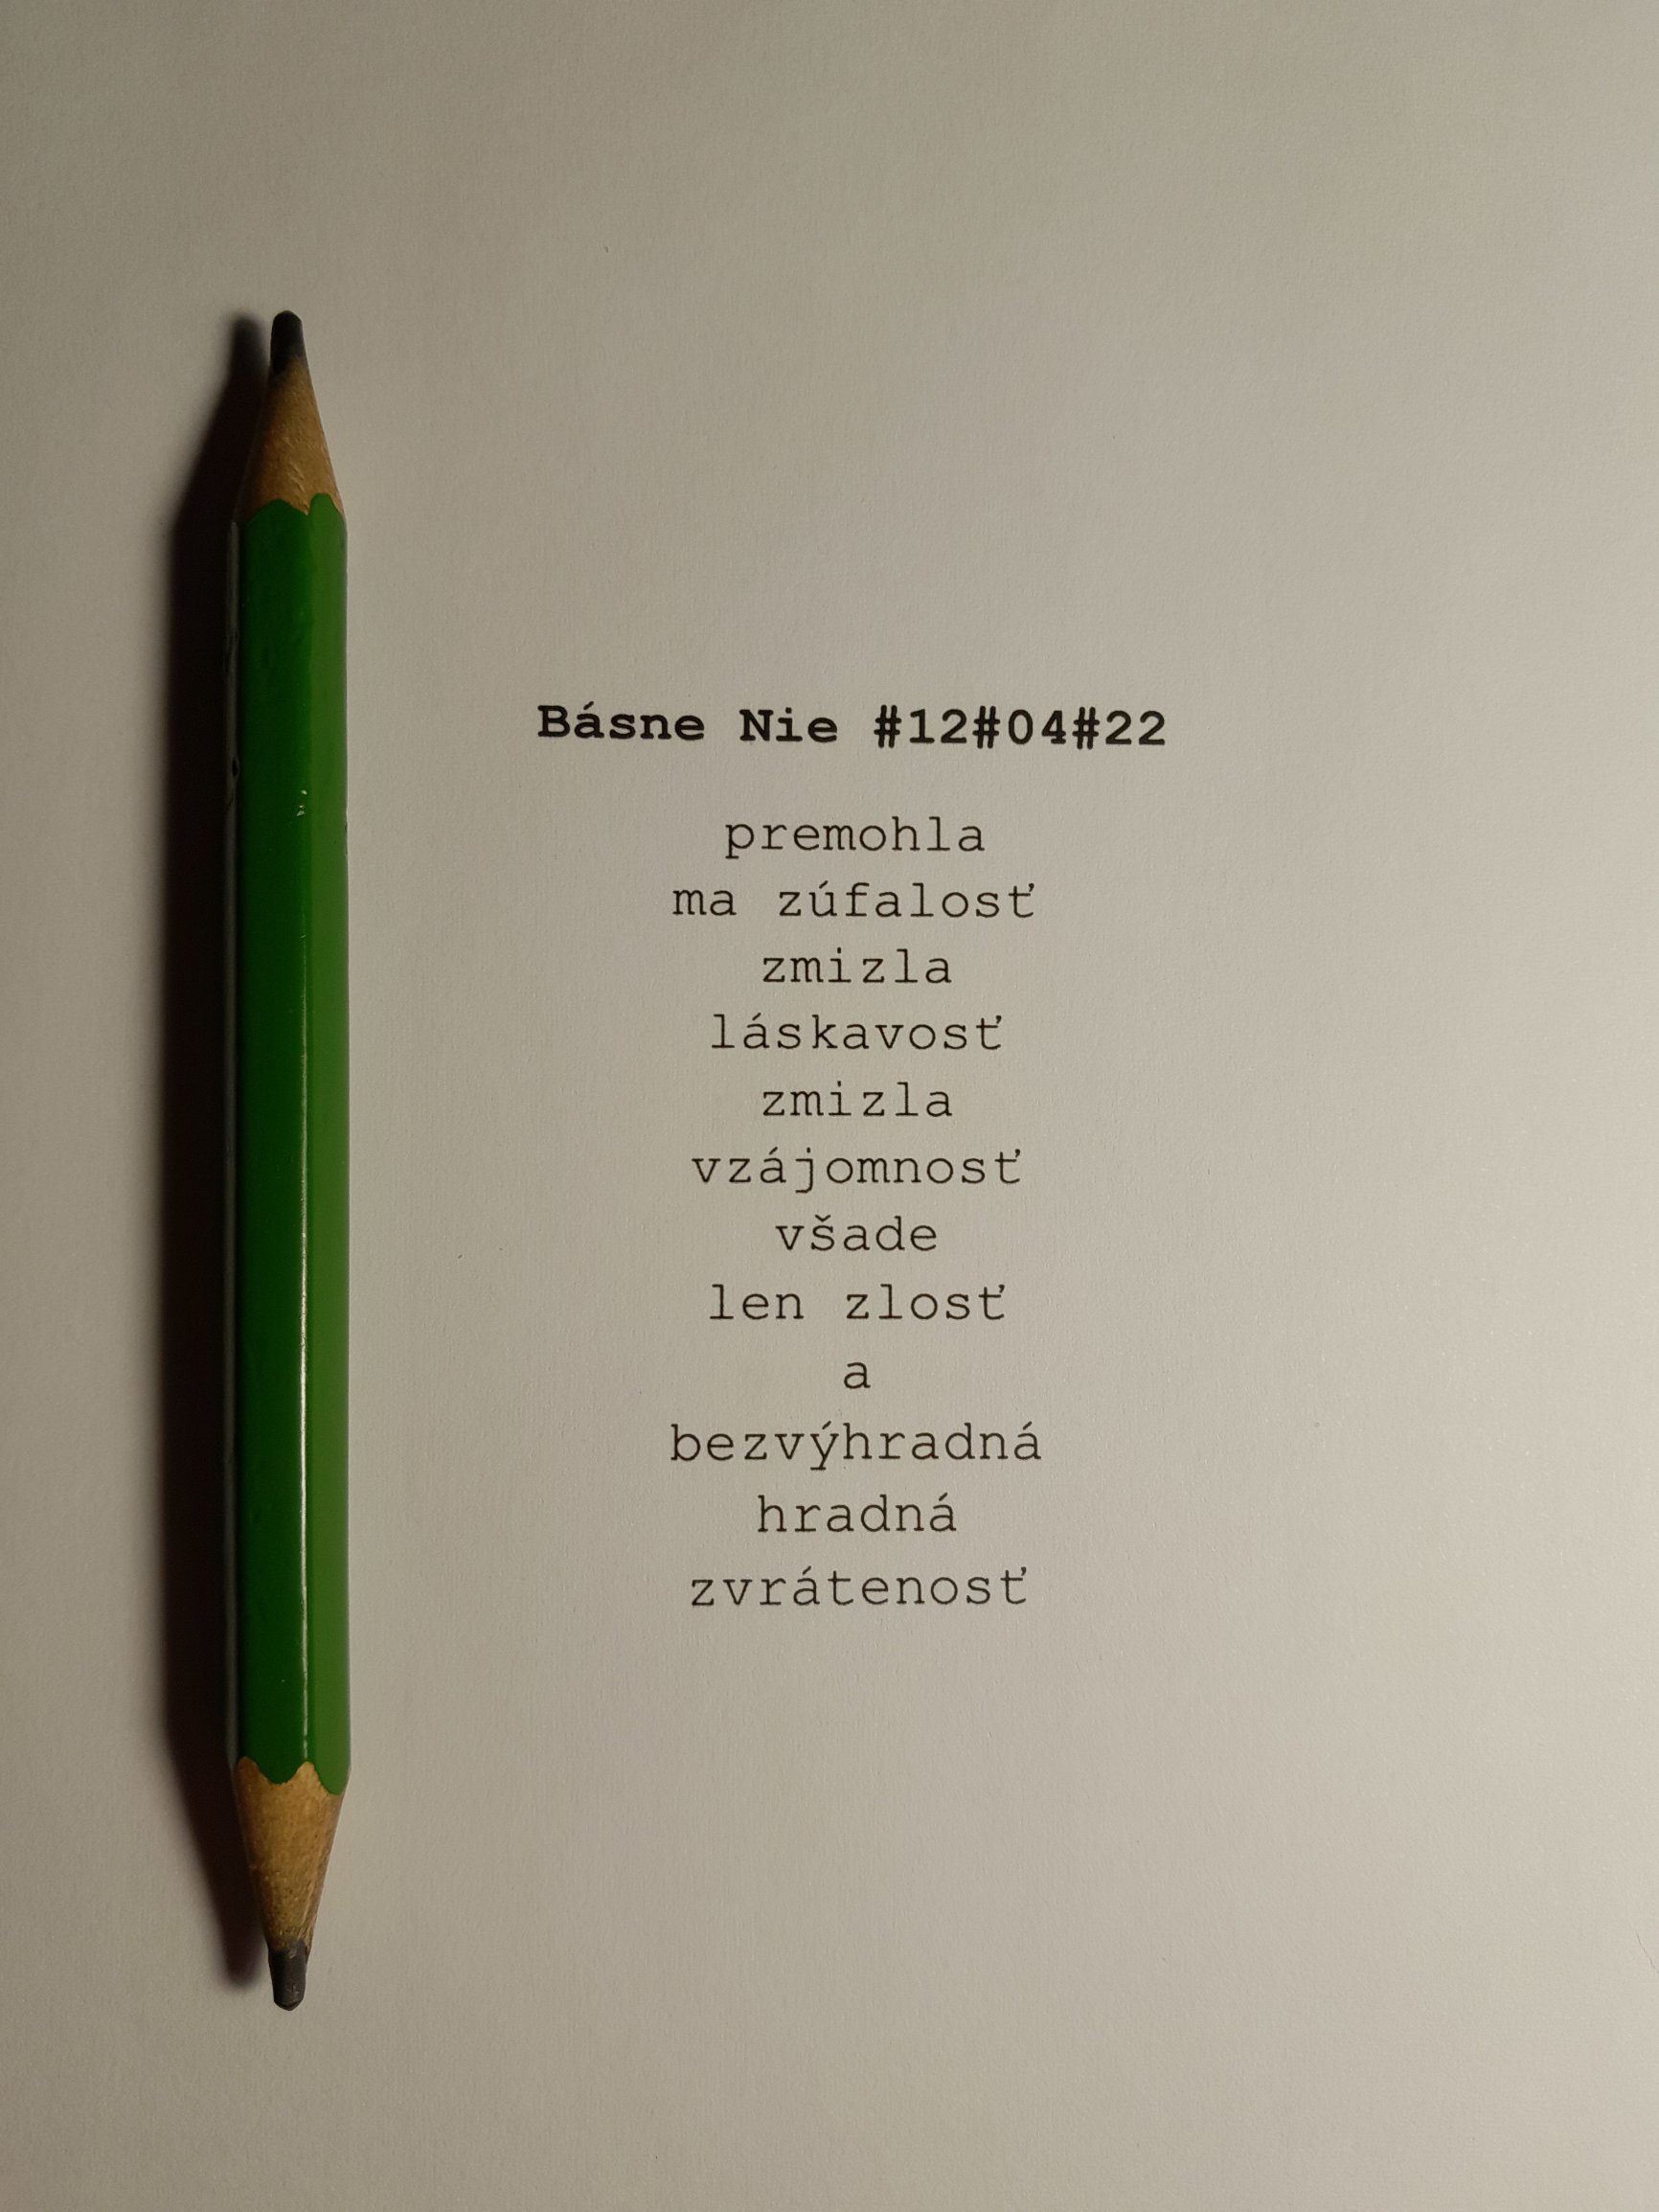 Básne Nie #12#04#22
premohla
ma zúfalosť
zmizla
láskavosť
zmizla
vzájomnosť
všade
len zlosť
a
bezvýhradná
hradná
zvrátenosť